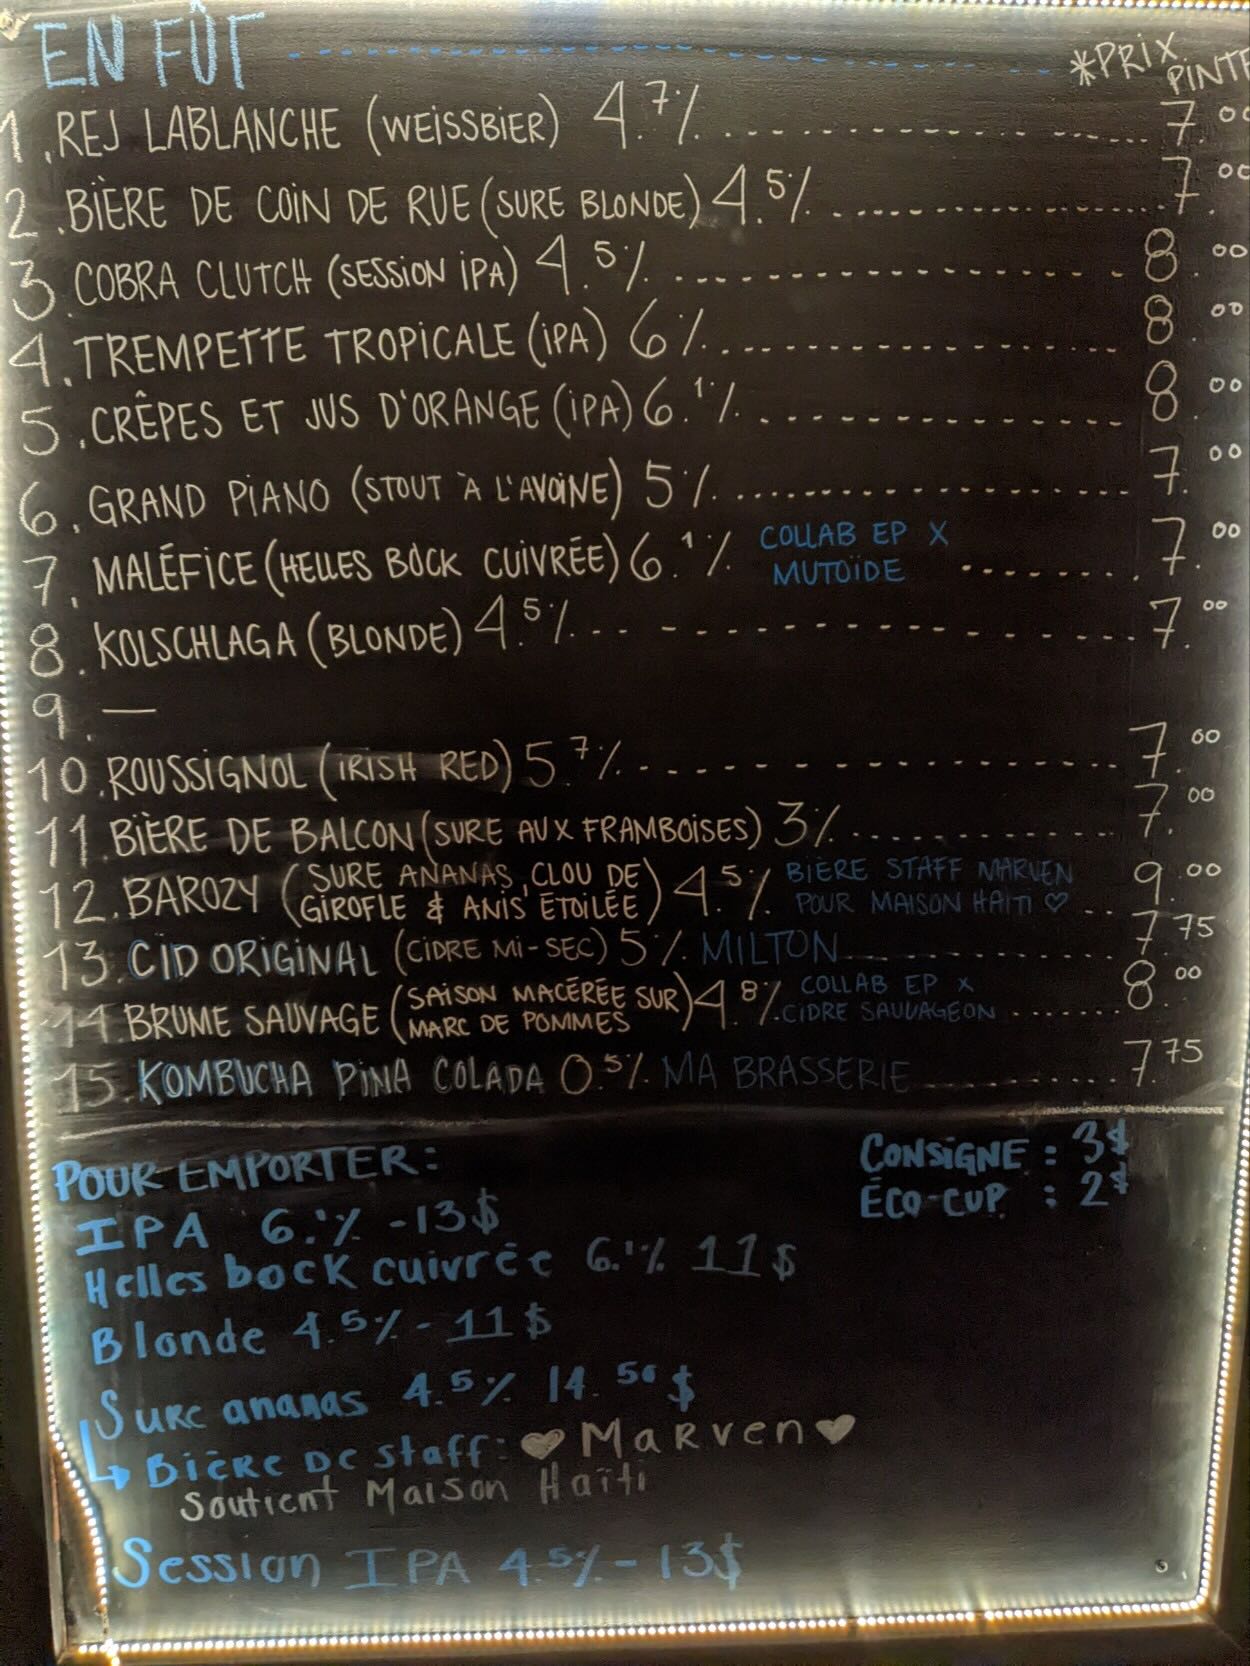 EN FÛT *PRIX PINTE
1. REJ LABLANCHE (WEISSBIER) 4.7% 7.00
2. BIÈRE DE COIN DE RUE (SURE BLONDE) 4.5% 7.00
3. COBRA CLUTCH (SESSION IPA) 4.5% 8.00
4. TREMPETTE TROPICALE (IPA) 6% 8.00
5. CRÊPES ET JUS D'ORANGE (IPA) 6.1% 8.00
6. GRAND PIANO (STOUT À L'AVOINE) 5% 7.00
7. MALÉFICE (HELLES BOCK CUIVRÉE) 6.1% COLLAB EP X MUTOÏDE 7.00
8. KOLSCHLAGA (BLONDE) 4.5% 7.00
9. —
10. ROUSSIGNOL (IRISH RED) 5.7% 7.00
11. BIÈRE DE BALCON (SURE AUX FRAMBOISES) 3% 7.00
12. BAROZY (SURE ANANAS, CLOU DE GIROFLE & ANIS ÉTOILÉE) 4.5% BIÈRE STAFF MARVEN POUR MAISON HAITI ♡ 9.00
13. CID ORIGINAL (CIDRE MI-SEC) 5% MILTON 7.75
14. BRUME SAUVAGE (SAISON MACÉRÉE SUR MARC DE POMMES) 4.8% COLLAB EP X CIDRE SAUVAGEON 8.00
15. KOMBUCHA PINA COLADA 0.5% MA BRASSERIE 7.75
POUR EMPORTER:
CONSIGNE : 3$
ÉCO-CUP : 2$
IPA 6.1% - 13$
Helles bock cuivrée 6.1% 11$
Blonde 4.5% - 11$
Sure ananas 4.5% 14.50$
↳ Bière de staff: ♥ Marven ♥
Soutient Maison Haïti
Session IPA 4.5% - 13$